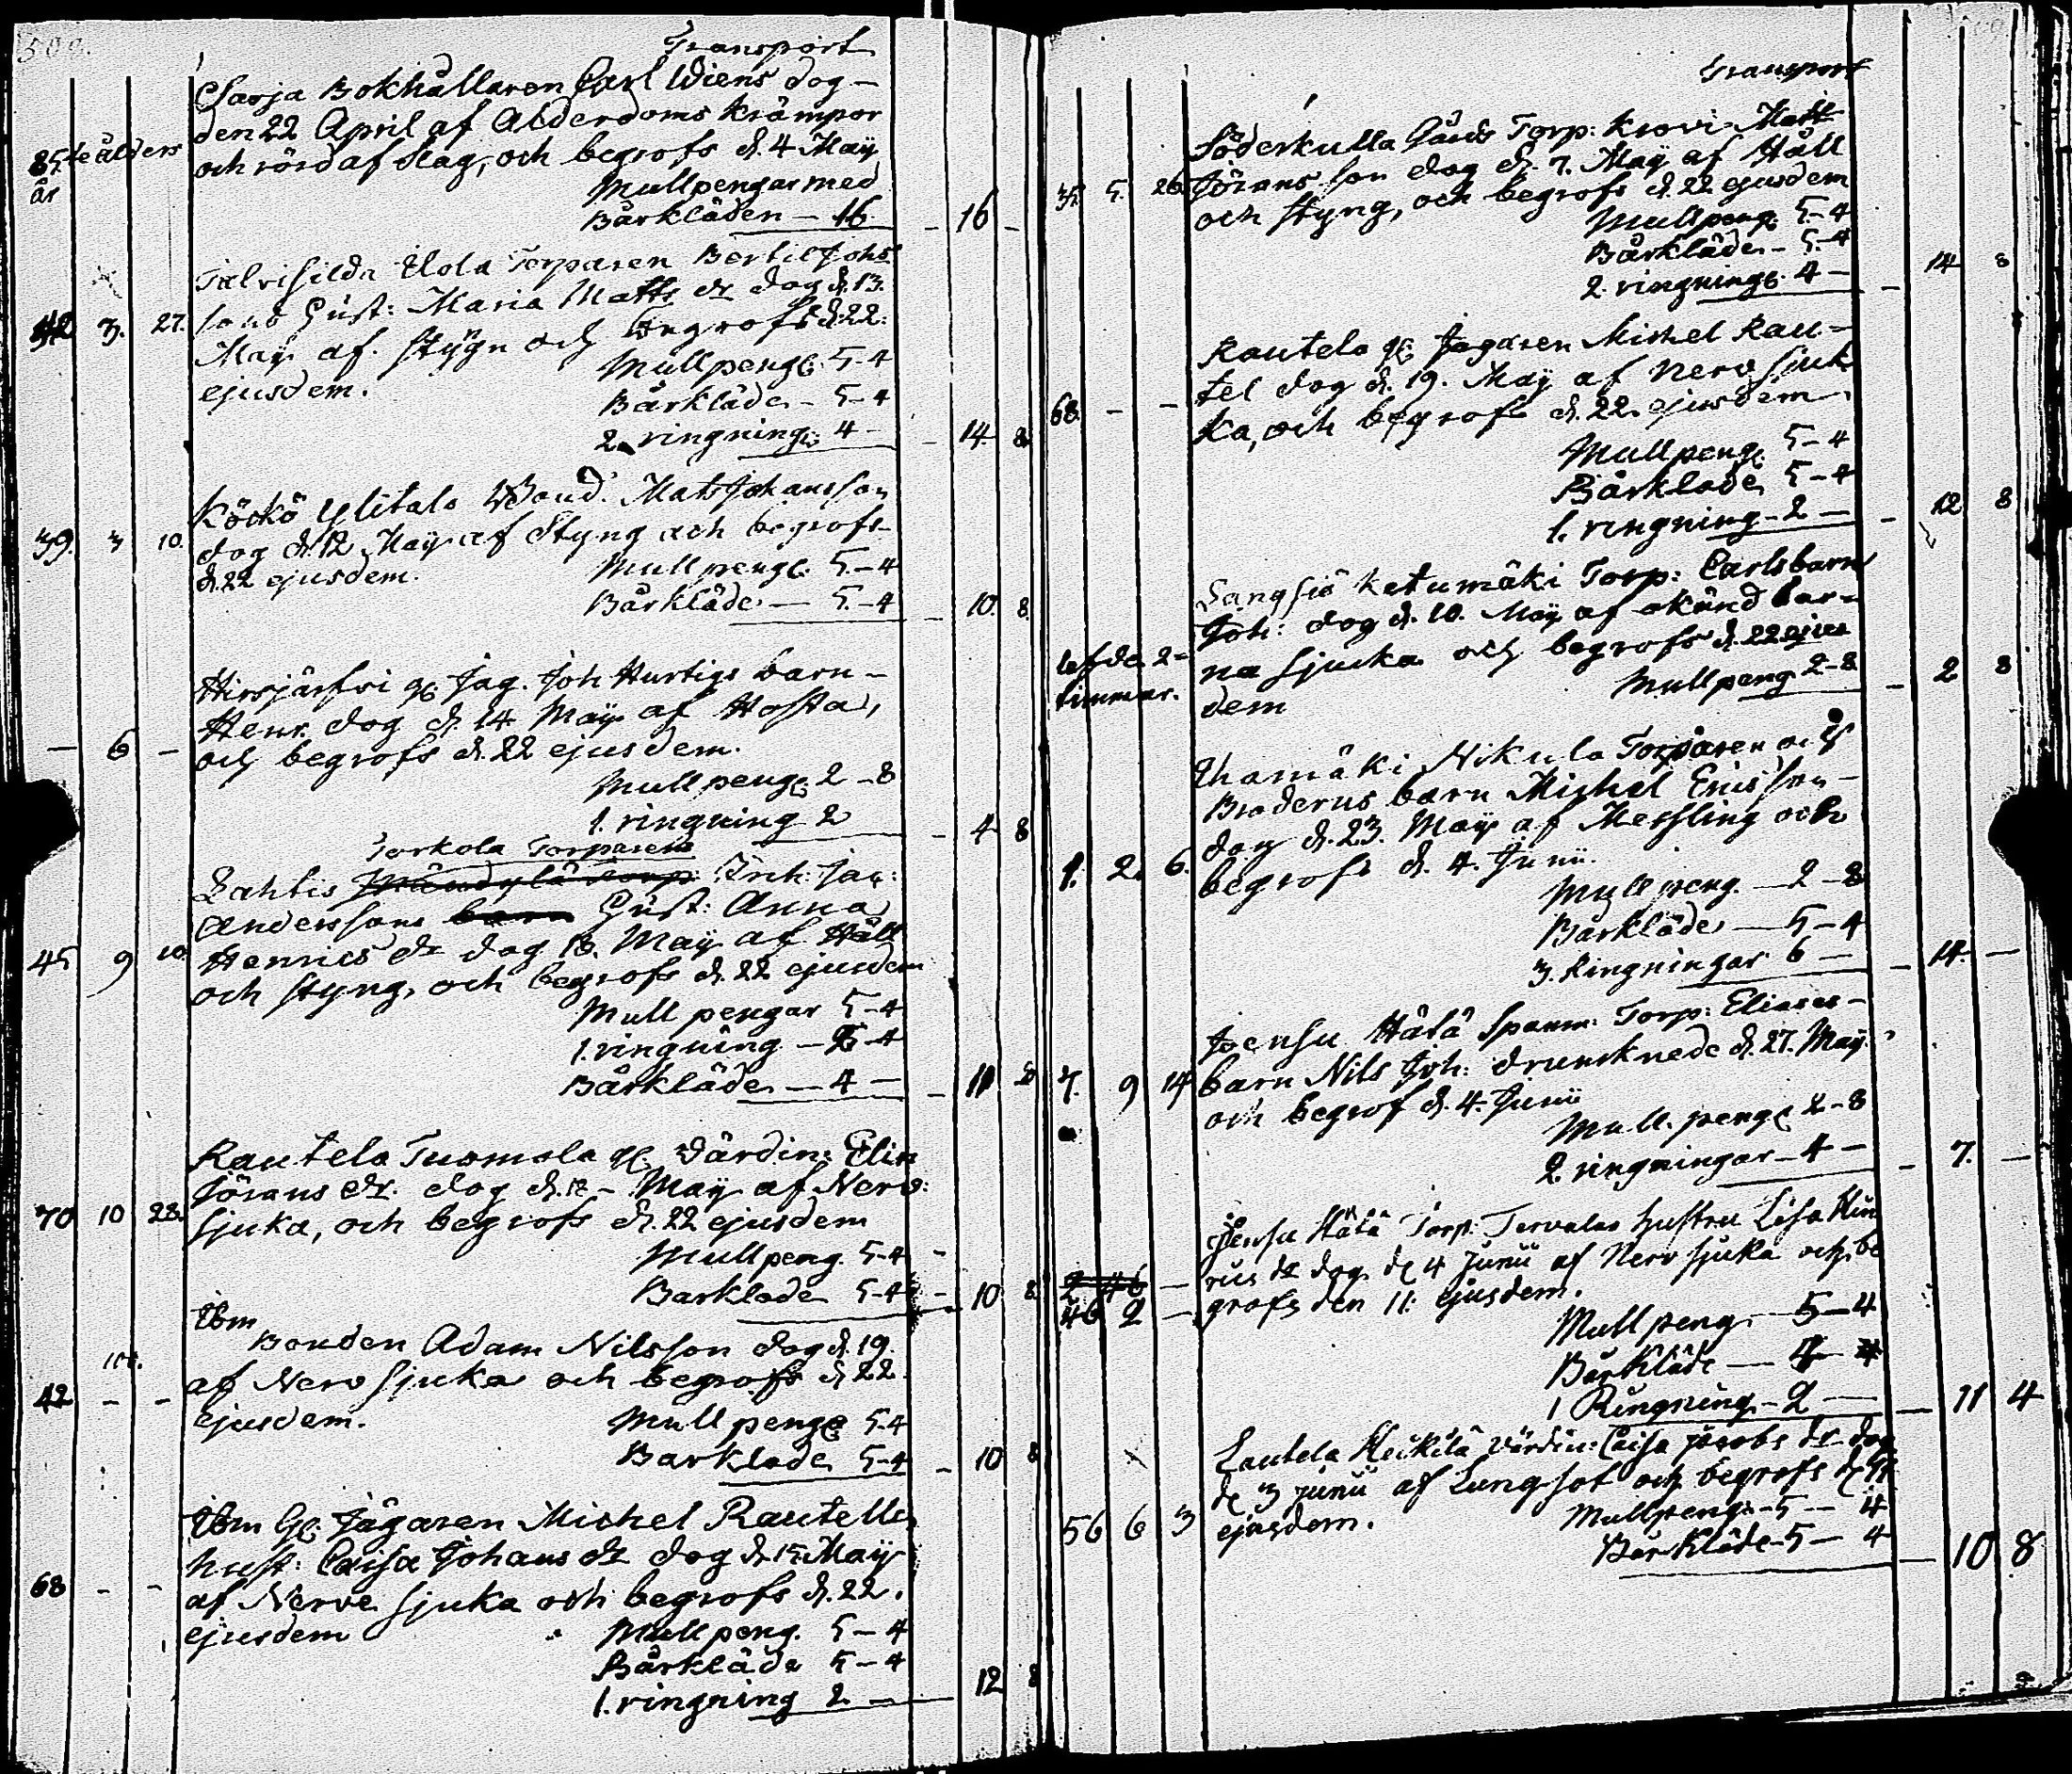 509.
Transport
Sarja Bokhållaren Carl Widens dog
den 22 April af Alderdoms krämpor
85te ålders år
och rörd af slag, och begrofs d. 4 May
Mullpengar med
Bårkläden — 16. — 16 —
Talvisilda Uola Torparen Bertil Johs
sons Hust: Maria Matts dr dog d. 13.
42 3. 27.
May af stygn och begrofs d. 22:
ejusdem.
Mullpeng. 5-4
Bårkläde - 5-4
2 ringning. 4 — 14 8
Köckö Ylitalo Bond. Mats Johansson
39. 3 10.
dog d. 12 May af Styng och begrofs
d. 22 ejusdem.
Mull peng. 5-4
Bårkläde — 5-4 — 10. 8.
Hirsjärfvi gl. Jag. Joh Hurtigs barn
Henr. dog d. 14 May af Hosta,
— 6 —
och begrofs d. 22 ejusdem.
Mullpeng. 2-8
1. ringning 2 — 4 8
Torkola Torparens
Lahtis Inh: Jac:
Anderssons barn Hust: Anna
45 9 10
Henrics dr dog 18. May af Håll
och styng, och begrofs d. 22 ejusdem
Mull pengar 5-4
1. ringning
Bårkläde — 4 —
Rautela Tuomola gl. Värdin: Elin
Jörans dr. dog d. 12 - May af Nerv:
70 10 28.
sjuka, och begrofs d. 22 ejusdem
Mullpeng. 5-4
Barklade 5-4 — 10 8
Ibm
Bonden Adam Nilsson dog d. 19.
42 - -
af Nerv sjuka och begrofs d 22.
ejusdem.
Mull peng 5-4
Barklade 5-4 — 10 8
Ibm Gl. Jägaren Michel Rautells
hust: Caisa Johans dr dog d. 15 May
68 - -
af Nerve sjuka och begrofs d. 22.
ejusdem
Mull peng. 5-4
Bårkläde 5-4
1. ringning 2 — 12 8
Transport
Söderkulla Gårds Torp: Krovi Matt
35. 5. 26.
Jörans son dog d. 7. May af Håll
och styng, och begrofs d. 22 ejusdem
Mullpeng. 5-4
Bårkläde - 5-4
2. ringning. 4 — 14 8
Rautela gl. Jagaren Michel Rau-
tel dog d. 19. May af Nerv sjuk
68. - -
ka, och begrofs d. 22. ejusdem.
Mullpeng. 5-4
Bårklade 5-4
1. ringning - 2 — 12 8
Sängsiö Ketumäki Torp: Carls barn
Joh: dog d. 10. May af okänd bar-
lefde 2=
timmar.
na sjuka och begrofs d. 22 ejus
dem
Mullpeng 2-8 — 2 8
Uhamäki Nikula Torparen och
Broderns barn Michel Ericsson
dog d. 23. May af Messling och
1. 2. 6.
begrofs d. 4. Junii.
Mull peng. — 2-8
Bårkläde — 5-4
3. Ringningar 6 — 14. —
Joensu Hätä Spanm: Torp: Eliases
7. 9 14
barn Nils Joh: drunknede d. 27. May
och begrof d. 4. Junii
Mull. peng 2-8
2 ringningar - 4 — 7. —
Jensu Hätä Torp: Tervalas hustru Lisa Hin
rics dr dog d. 4 Junii af Nerv sjuka och be
2 46 —
46 2 —
grofs den 11: ejusdem.
Mull peng. — 5-4
BårKläde — 4
1 Ringning - 2 — 11 4
Lautela Heikilä Värdin: Caisa Jacobs dr dog
d. 3 junii af Lungsot och begrofs d.
56 6 3
ejusdem.
Mullpeng. - 5 — 4
BårKläde - 5 — 4 — 10 8